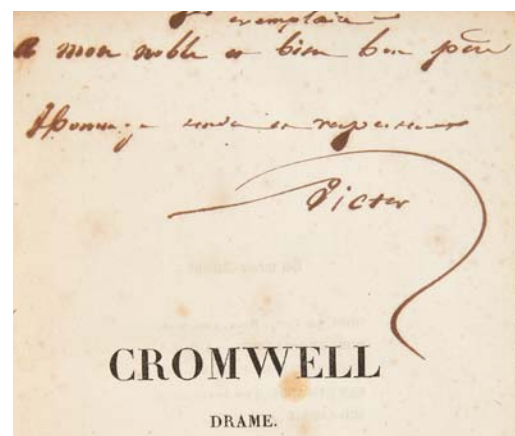 exemplaire
à mon noble et bien bon père
Hommage tendre et respectueux
Victor
CROMWELL
DRAME.